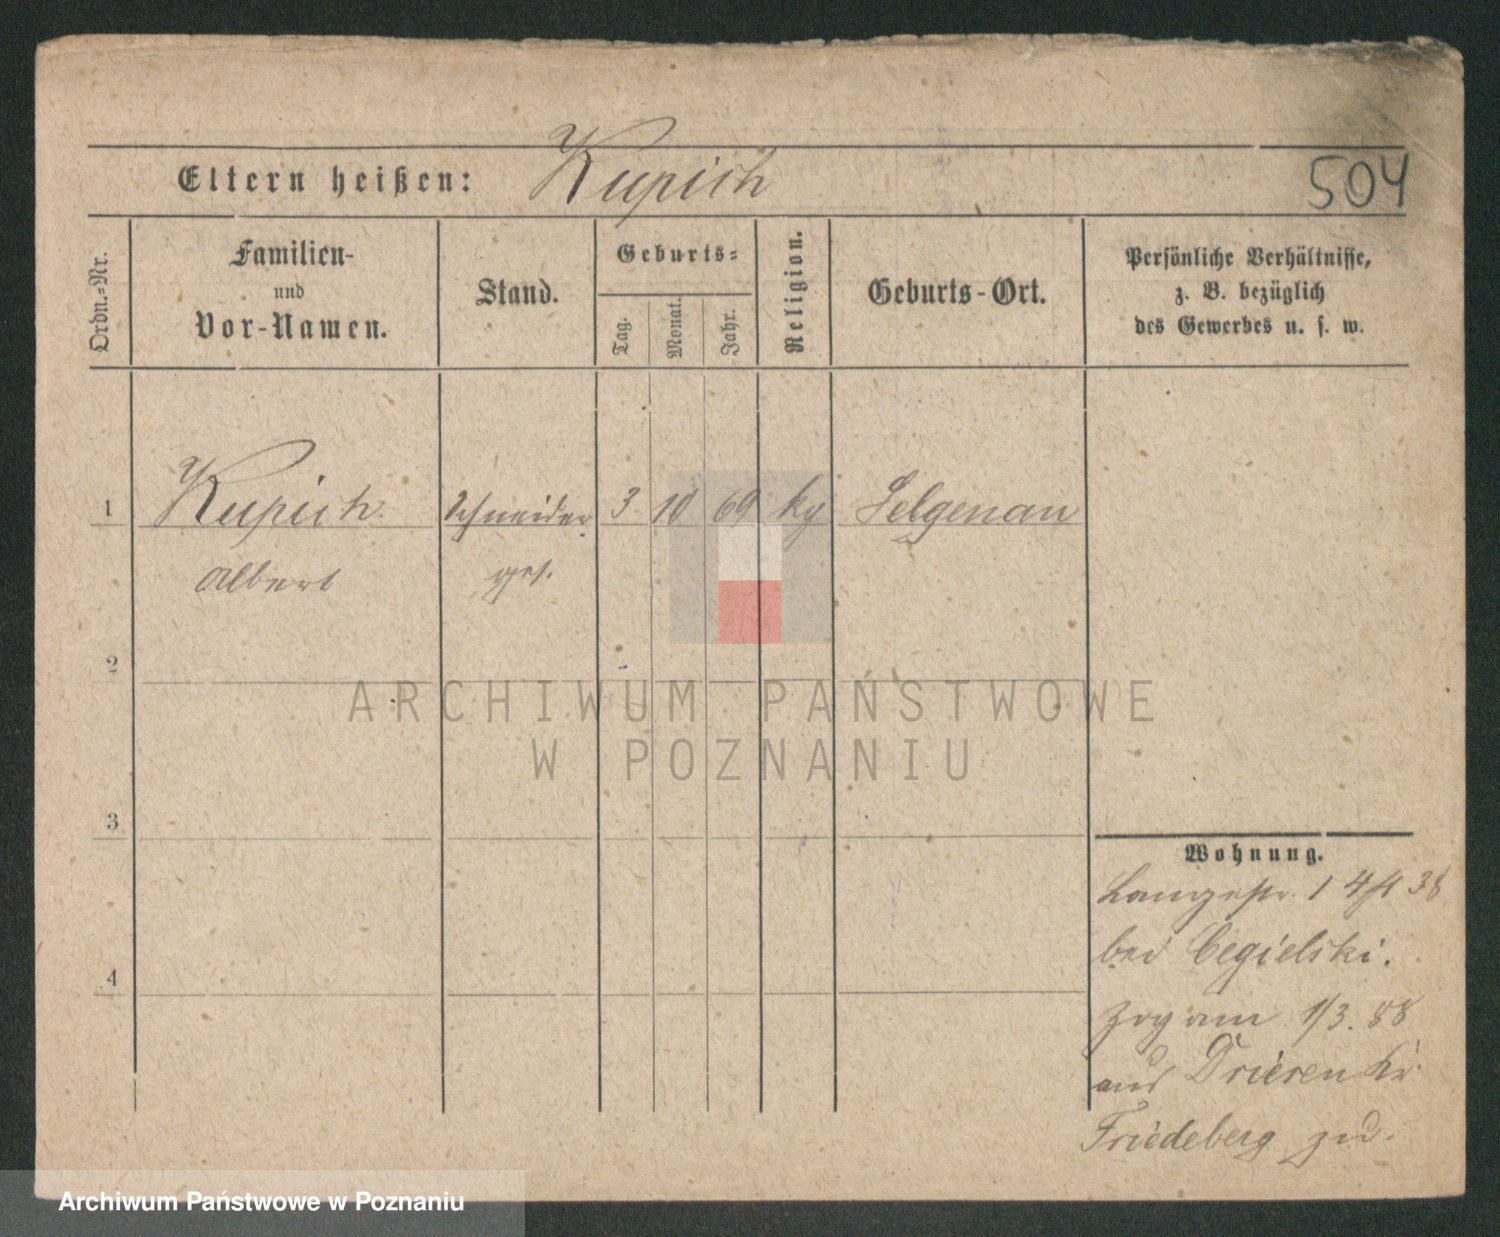 Eltern heißen: Kupich
504
Ordn.-Nr.
Familien-
und
Vor-Namen.
Stand.
Geburts-
Tag.
Monat.
Jahr.
Religion.
Geburts-Ort.
Persönliche Verhältnisse,
z. B. bezüglich
des Gewerbes u. s. w.
1 Kupich Schneider 3 10 69 Selgenau
Albert ges.
2
3
4
Wohnung.
Langestr. 1 4/1 38
bei Cegielski.
zog am 1/3. 88
aus Driesen Kr.
Friedeberg zu.
ARCHIWUM PAŃSTWOWE
W POZNANIU
Archiwum Państwowe w Poznaniu